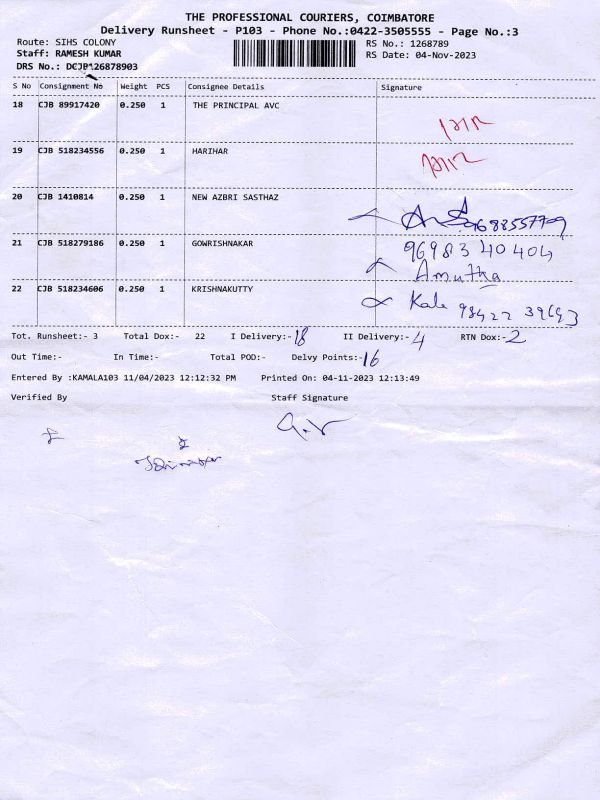 THE PROFESSIONAL COURIERS, COIMBATORE
Delivery Runsheet - P103 - Phone No.:0422-3505555 - Page No.:3
Route: SIHS COLONY RS No.: 1268789
Staff: RAMESH KUMAR RS Date: 04-Nov-2023
DRS No.: DCJB126878903
S No Consignment No Weight PCS Consignee Details Signature
18 CJB 89917420 0.250 1 THE PRINCIPAL AVC
19 CJB 518234556 0.250 1 HARIHAR
20 CJB 1410814 0.250 1 NEW AZBRI SASTHAZ
9688557709
21 CJB 518279186 0.250 1 GOWRISHNAKAR 96983 40404
Amutha
22 CJB 518234606 0.250 1 KRISHNAKUTTY Kala 98422 39693
Tot. Runsheet:- 3 Total Dox:- 22 I Delivery:- 18 II Delivery:- 4 RTN Dox:- 2
Out Time:- In Time:- Total POD:- Delvy Points:- 16
Entered By :KAMALA103 11/04/2023 12:12:32 PM Printed On: 04-11-2023 12:13:49
Verified By Staff Signature